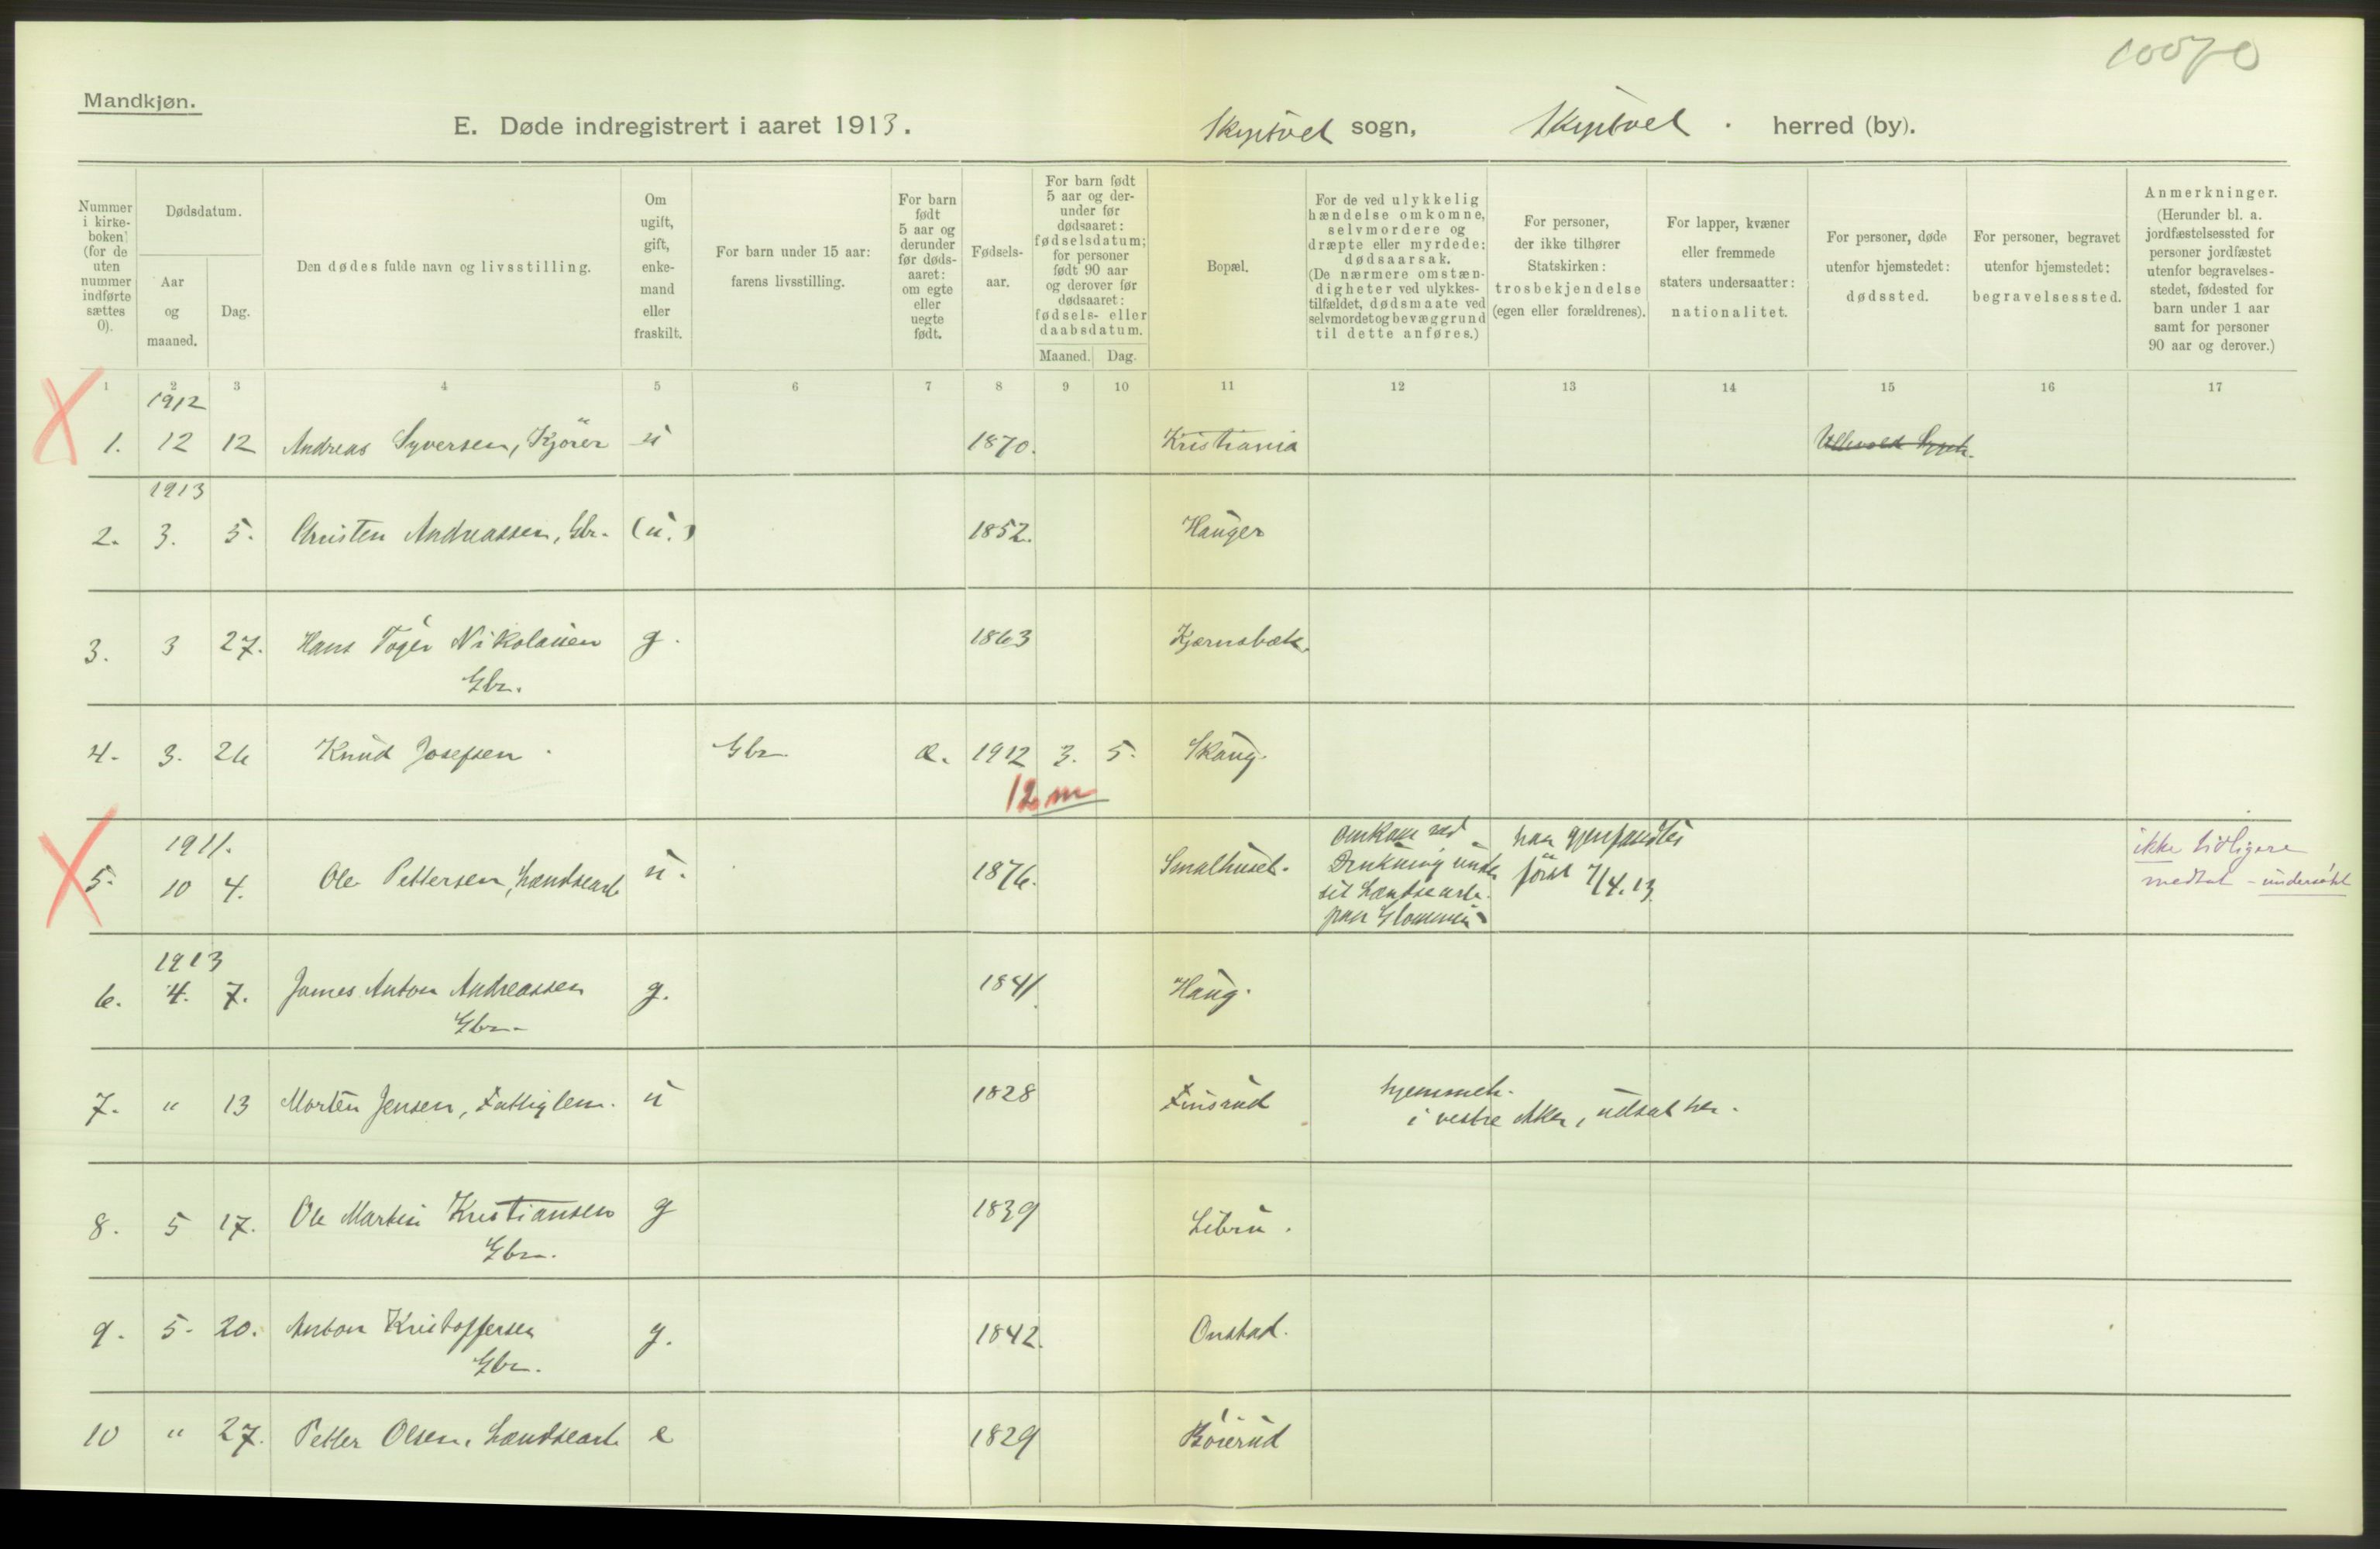 10070
Mandkjøn.
E. Døde indregistrert i aaret 1913.
Skiptvet sogn, Skiptvet . herred (by).
Nummer i kirkeboken (for de uten nummer indførte sættes 0).
Dødsdatum.
Aar og maaned.
Dag.
Den dødes fulde navn og livsstilling.
Om ugift, gift, enkemand eller fraskilt.
For barn under 15 aar: farens livsstilling.
For barn født 5 aar og derunder før dødsaaret: om egte eller uegte født.
Fødselsaar.
For barn født 5 aar og derunder før dødsaaret: fødselsdatum; for personer født 90 aar og derover før dødsaaret: fødsels- eller daabsdatum.
Maaned.
Dag.
Bopæl.
For de ved ulykkelig hændelse omkomne, selvmordere og dræpte eller myrdede: dødsaarsak. (De nærmere omstændigheter ved ulykkestilfældet, dødsmaate ved selvmordet og bevæggrund til dette anføres.)
For personer, der ikke tilhører Statskirken: trosbekjendelse (egen eller forældrenes).
For lapper, kvæner eller fremmede staters undersaatter: nationalitet.
For personer, døde utenfor hjemstedet: dødssted.
For personer, begravet utenfor hjemstedet: begravelsessted.
Anmerkninger. (Herunder bl. a. jordfæstelsessted for personer jordfæstet utenfor begravelsesstedet, fødested for barn under 1 aar samt for personer 90 aar og derover.)
1 2 3 4 5 6 7 8 9 10 11 12 13 14 15 16 17
1912
1. 12 12 Andreas Syversen, Kjörer u 1870. Kristiania Ullevold Sygeh.
1913
2. 3. 5. Christen Andreassen, Gbr. (u.) 1852. Hauger
3. 3 27. Hans Toger Nikolaisen g. 1863 Kjærnsbæk.
Gbr.
4. 3. 26 Knud Josefsen Gbr. e. 1912 3. 5. Skaug.
12 m
1911.
5. 10 4. Ole Pettersen, Lændsearb u. 1876. Smalhuset.
Omkom ved
Drukning under
sit Lændsearb.
paa Glommen
han gjenfandtes
först 7/4.13.
ikke tidligere
medtat - undersökt
1913
6. 4. 7. James Anton Andreassen g. 1841. Haug.
Gbr.
7. " 13 Morten Jensen, Fattiglem. u 1828 Finsrud hjemmeh.
i vestre Aker, udsat her.
8. 5 17. Ole Martin Kristiansen g 1839 Libru.
Gbr.
9. 5. 20. Anton Kristoffersen g. 1842. Onstad.
Gbr.
10 " 27. Petter Olsen, Lændsearb e 1829 Böierud